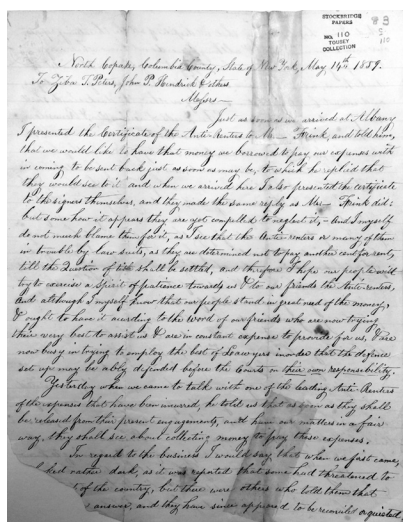 STOCKBRIDGE
PAPERS
NO. 110
TOUSEY
COLLECTION
#3
S
110
North Copake, Columbia County, State of New York, May 14th 1859.
To Ziba T. Peters, John P. Hendrick & others
Messrs —
Just as soon as we arrived at Albany
I presented the Certificate of the Anti-Renters to Mr — Frink, and told him,
that we would like to have that money we borrowed to pay our expenses with
in coming to be sent back just as soon as may be, to which he replied that
they would see to it and when we arrived here I also presented the certificate
to the signers themselves, and they made the same reply as Mr — Frink did:
but some how it appears they are yet compelled to neglect it, — And I myself
do not much blame them for it, as I see that the Anti-renters or many of them
in trouble by Law suits, as they are determined not to pay another cent for rent,
till the Question of title shall be settled, and therefore I hope our people will
try to exercise a Spirit of patience towards us & to our friends the Anti-renters,
And although I myself know that our people stand in great need of the money,
& ought to have it acording to the word of our friends who are now trying
their very best to assist us & are in constant expense to provide for us, & are
now busy in trying to employ the best of Lawyers inorder that the defence
set up may be ably defended before the Courts on their own responsibility.
Yesterday when we came to talk with one of the leading Anti-Renters
of the expenses that have been incurred, he told us that as soon as they shall
be released from their present engagements, and have our matters in a fair
way, they shall see about collecting money to pay these expenses.
In regard to the business I would say, that when we first came,
rather dark, as it was reported that some had threatened to
of the country, but there were others who told them that
answer, and they have since appeared to be reconciled or quieted